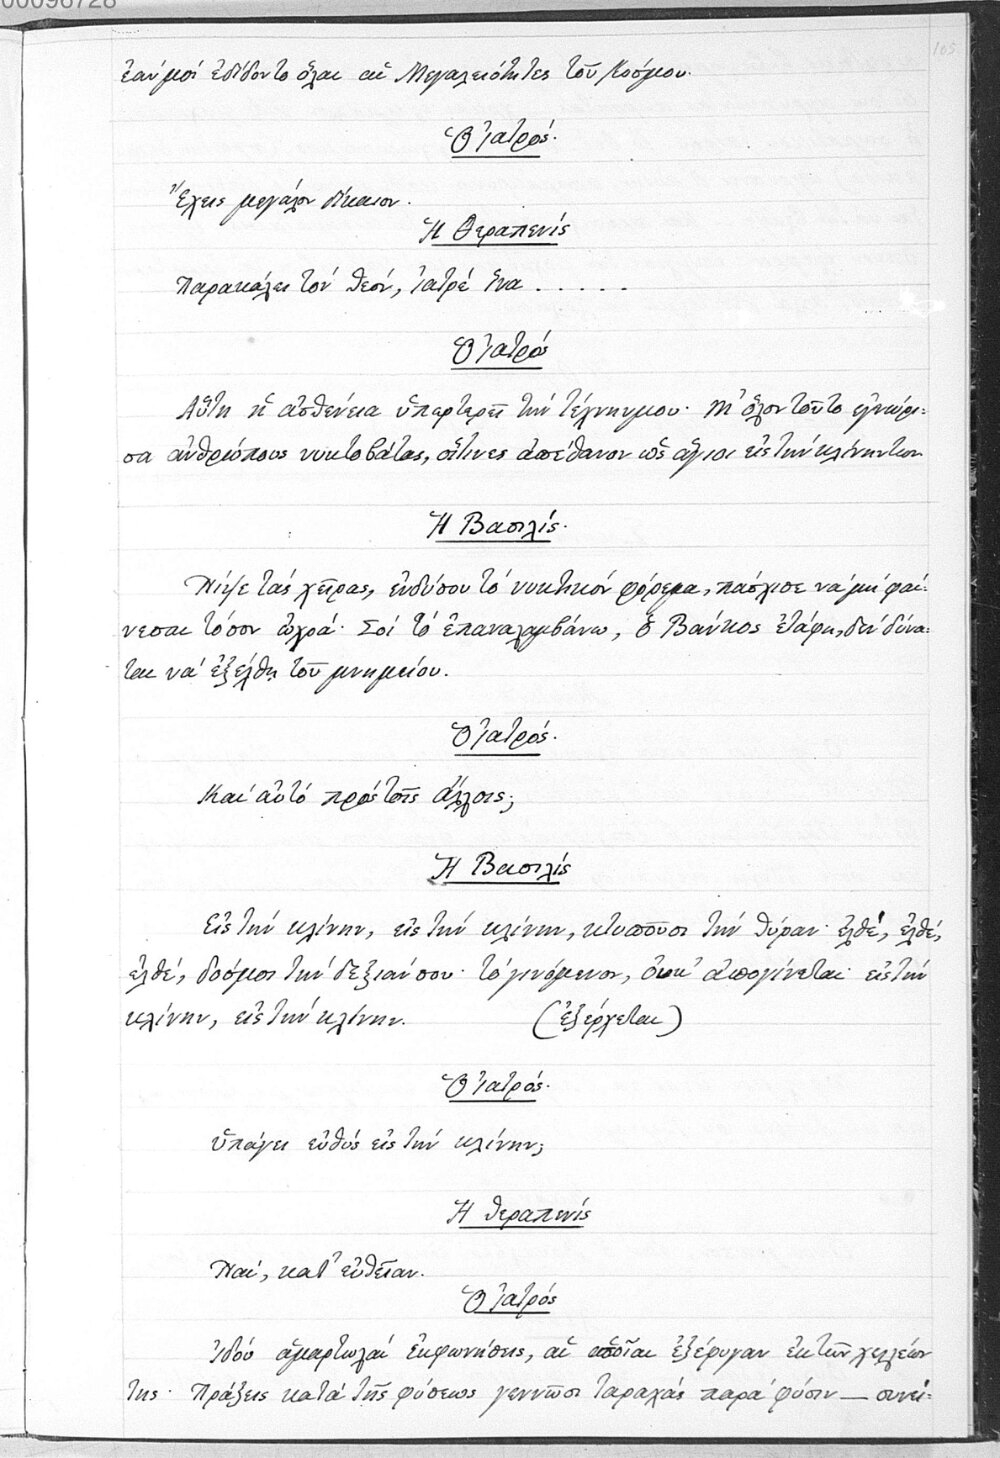 00096728
105
ἐὰν μοὶ ἐδίδοντο ὅλαι αἱ Μεγαλειότητες τοῦ Κόσμου.
Ὁ Ἰατρός.
Ἔχεις μεγάλον δίκαιον.
Ἡ Θεραπενίς
Παρακάλει τὸν θεόν, ἰατρέ ἵνα . . . . .
Ὁ Ἰατρός
Αὕτη ἡ ἀσθένεια ὑπερτερεῖ τὴν τέχνην μου. Μ' ὅλον τοῦτο ἐγνώρι-
σα ἀνθρώπους νυκτοβάτας, οἵτινες ἀπέθανον ὡς ἅγιοι εἰς τὴν κλίνην των
Ἡ Βασιλίς.
Νίψε τὰς χεῖρας, ἐνδύσου τὸ νυκτικόν φόρεμα, πάσχισε νὰ μὴ φαί-
νεσαι τόσον ὠχρά. Σοί τὸ ἐπαναλαμβάνω, ὁ Βάνκος ἐτάφη, δὲν δύνα-
ται νὰ ἐξέλθῃ τοῦ μνημείου.
Ὁ Ἰατρός.
Καὶ αὐτό πρὸς τοῖς ἄλλοις;
Ἡ Βασιλίς
Εἰς τὴν κλίνην, εἰς τὴν κλίνην, κτυποῦσι τὴν θύραν. ἐλθέ, ἐλθέ,
ἐλθέ, δόσμοι τὴν δεξιάν σου. τὸ γινόμενον, οὐκ ἀπογίνεται. εἰς τὴν
κλίνην, εἰς τὴν κλίνην. (ἐξέρχεται)
Ὁ Ἰατρός.
ὑπάγει εὐθύς εἰς τὴν κλίνην;
Ἡ θεραπενίς
Ναί, κατ' εὐθεῖαν.
Ὁ Ἰατρός
Ἰδού ἁμαρτωλαί ἐκφωνήσεις, αἱ ὁποῖαι ἐξέφυγαν ἐκ τῶν χειλέων
της. Πράξεις κατὰ τῆς φύσεως γεννῶσι ταραχάς παρά φύσιν — συνεί-